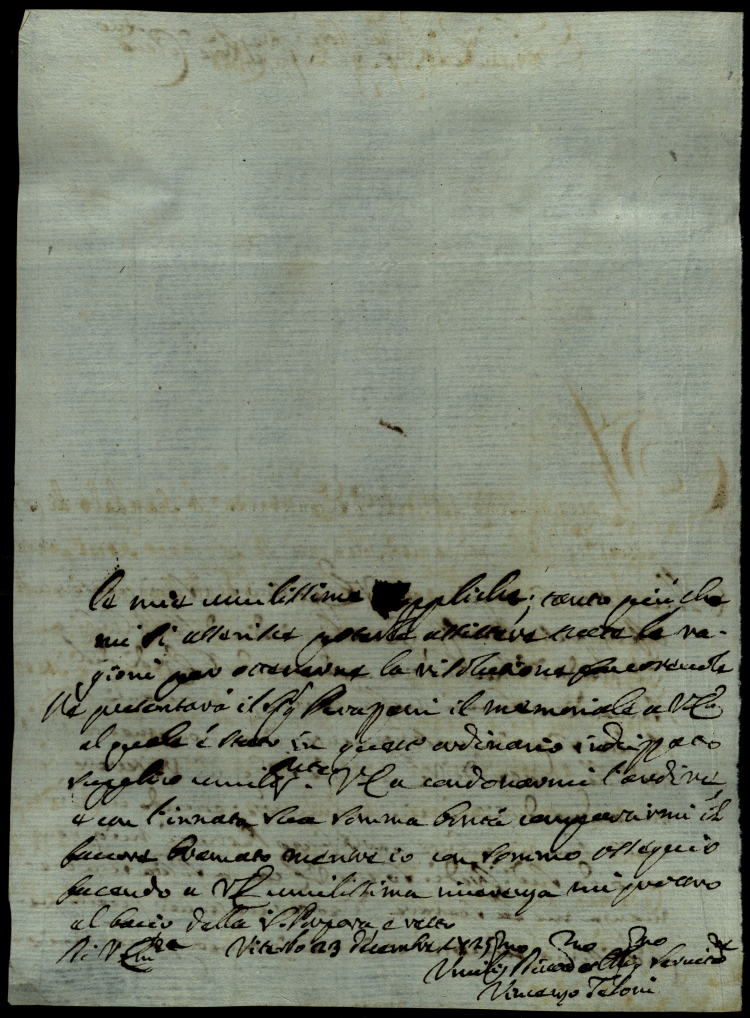 le mie umilissime suppliche; tanto più che
mi si asserisce potersi assistere tutte le ra-
gioni per ottenerne la risoluzione favorevole
Ne presentarà il Sig. il memoriale a V. Em.
al quale è stato in questo ordinario indirizzato
supplico umilis.te V. Em. condonarmi l'ardire
e con l'innata sua somma bontà compartirmi il
favore bramato mentre io con sommo ossequio
facendo a V. Em. umilissima riverenza mi preparo
al bacio della S. Porpora e resto
Di V. Em.za Viterbo 23 Decembre
Umilis.mo Servit.
Vincenzo